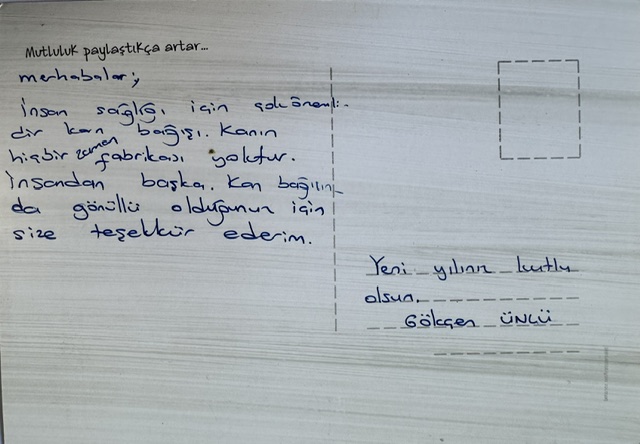 Mutluluk paylaştıkça artar...
merhabalar;
İnsan sağlığı için çok önemli-
dir kan bağışı. Kanın
hiçbir zaman fabrikası yoktur.
İnsandan başka. Kan bağışın-
da gönüllü olduğunuz için
size teşekkür ederim.
Yeni yılınız kutlu
olsun.
Gökçen ÜNLÜ